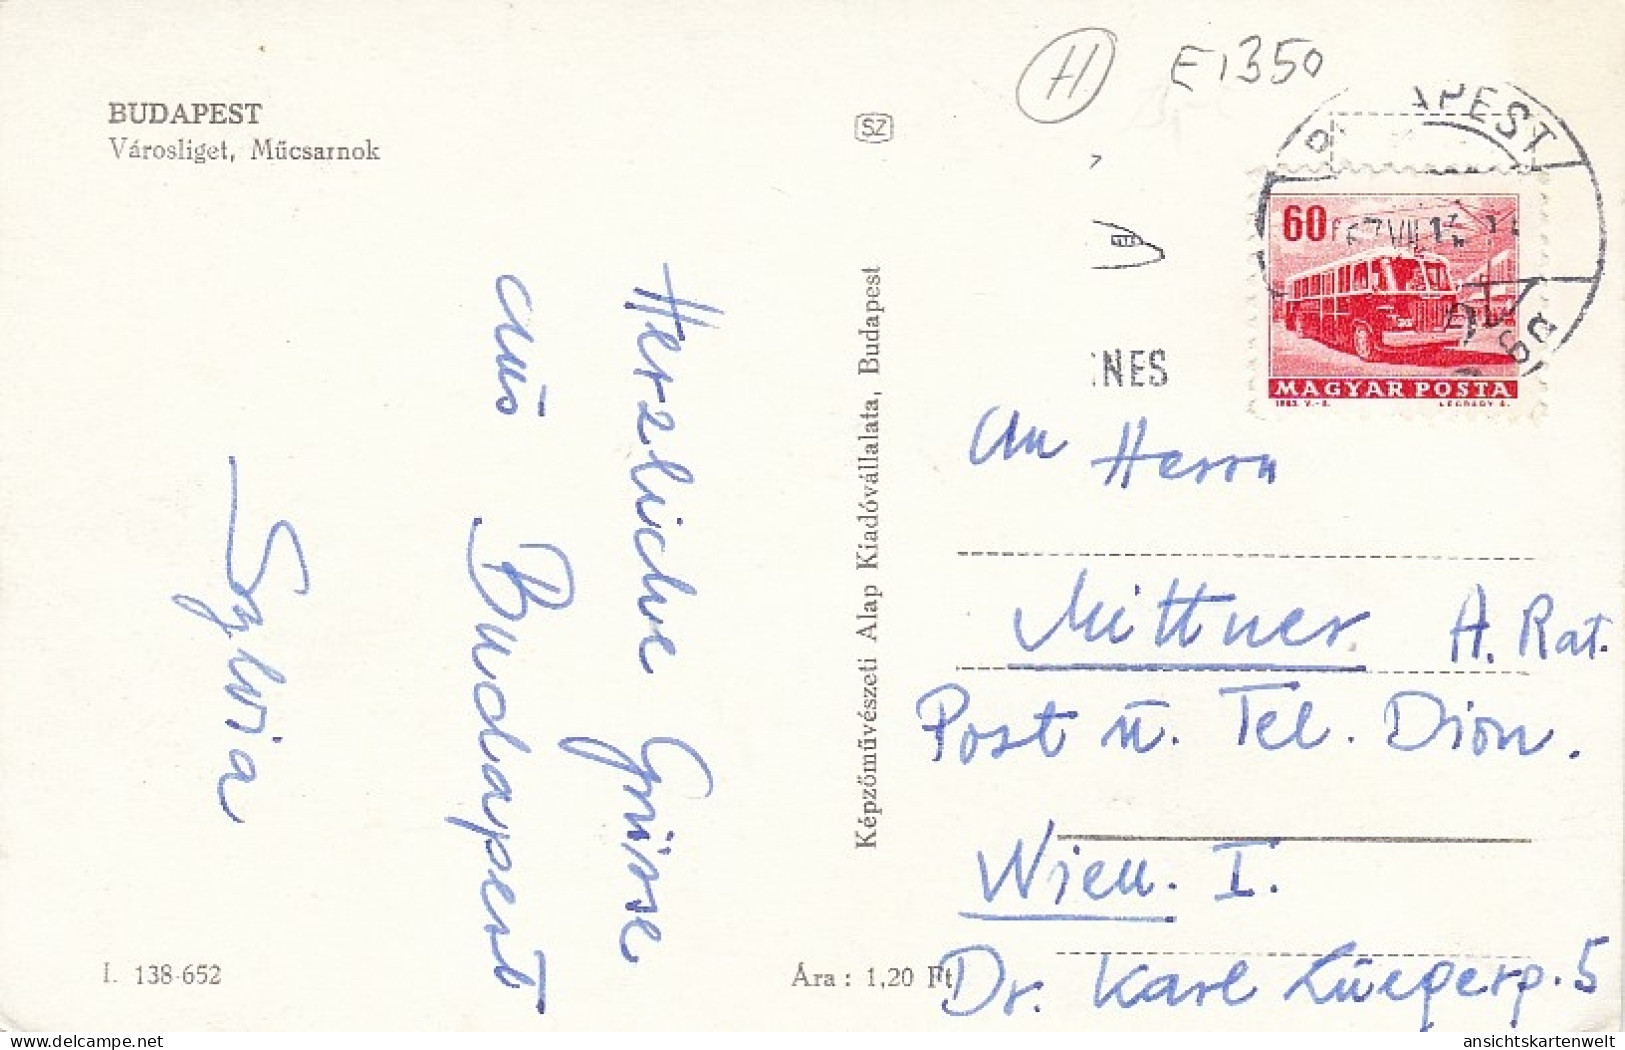 BUDAPEST
Városliget, Műcsarnok
SZ
H
E1350
Herzliche Grüsse
aus Budapest
Sylvia
Képzőművészeti Alap Kiadóvállalata, Budapest
60
MAGYAR POSTA
NES
An Herrn
Mittner A. Rat.
Post u. Tel. Dion.
Wien. I.
Dr. Karl Luegerp. 5
I. 138-652
Ára: 1,20 Ft
ansichtskartenwelt